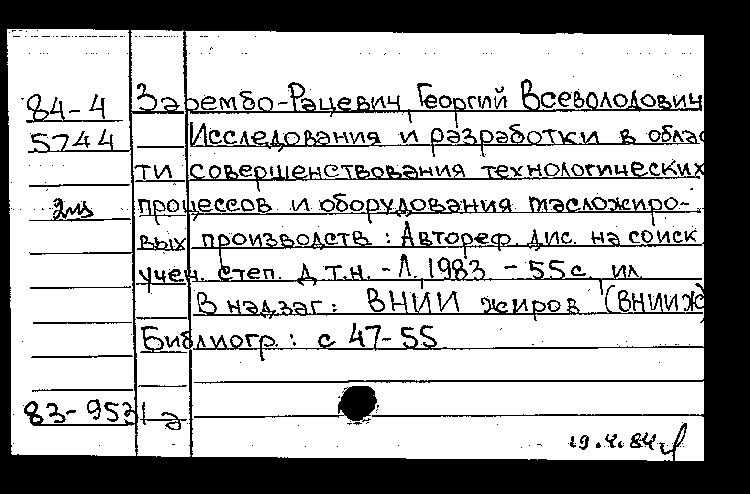 84-4 Зарембо-Рацевич, Георгий Всеволодович
5744 Исследования и разработки в облас
ти совершенствования технологических
2 процессов и оборудования масложиро-
вых производств : Автореф. дис. на соиск
учен. степ. д.т.н. - Л., 1983. - 55 с. ил.
В надзаг: ВНИИ жиров (ВНИИЖ)
Библиогр.: с 47-55
83-9531а
19.4.84